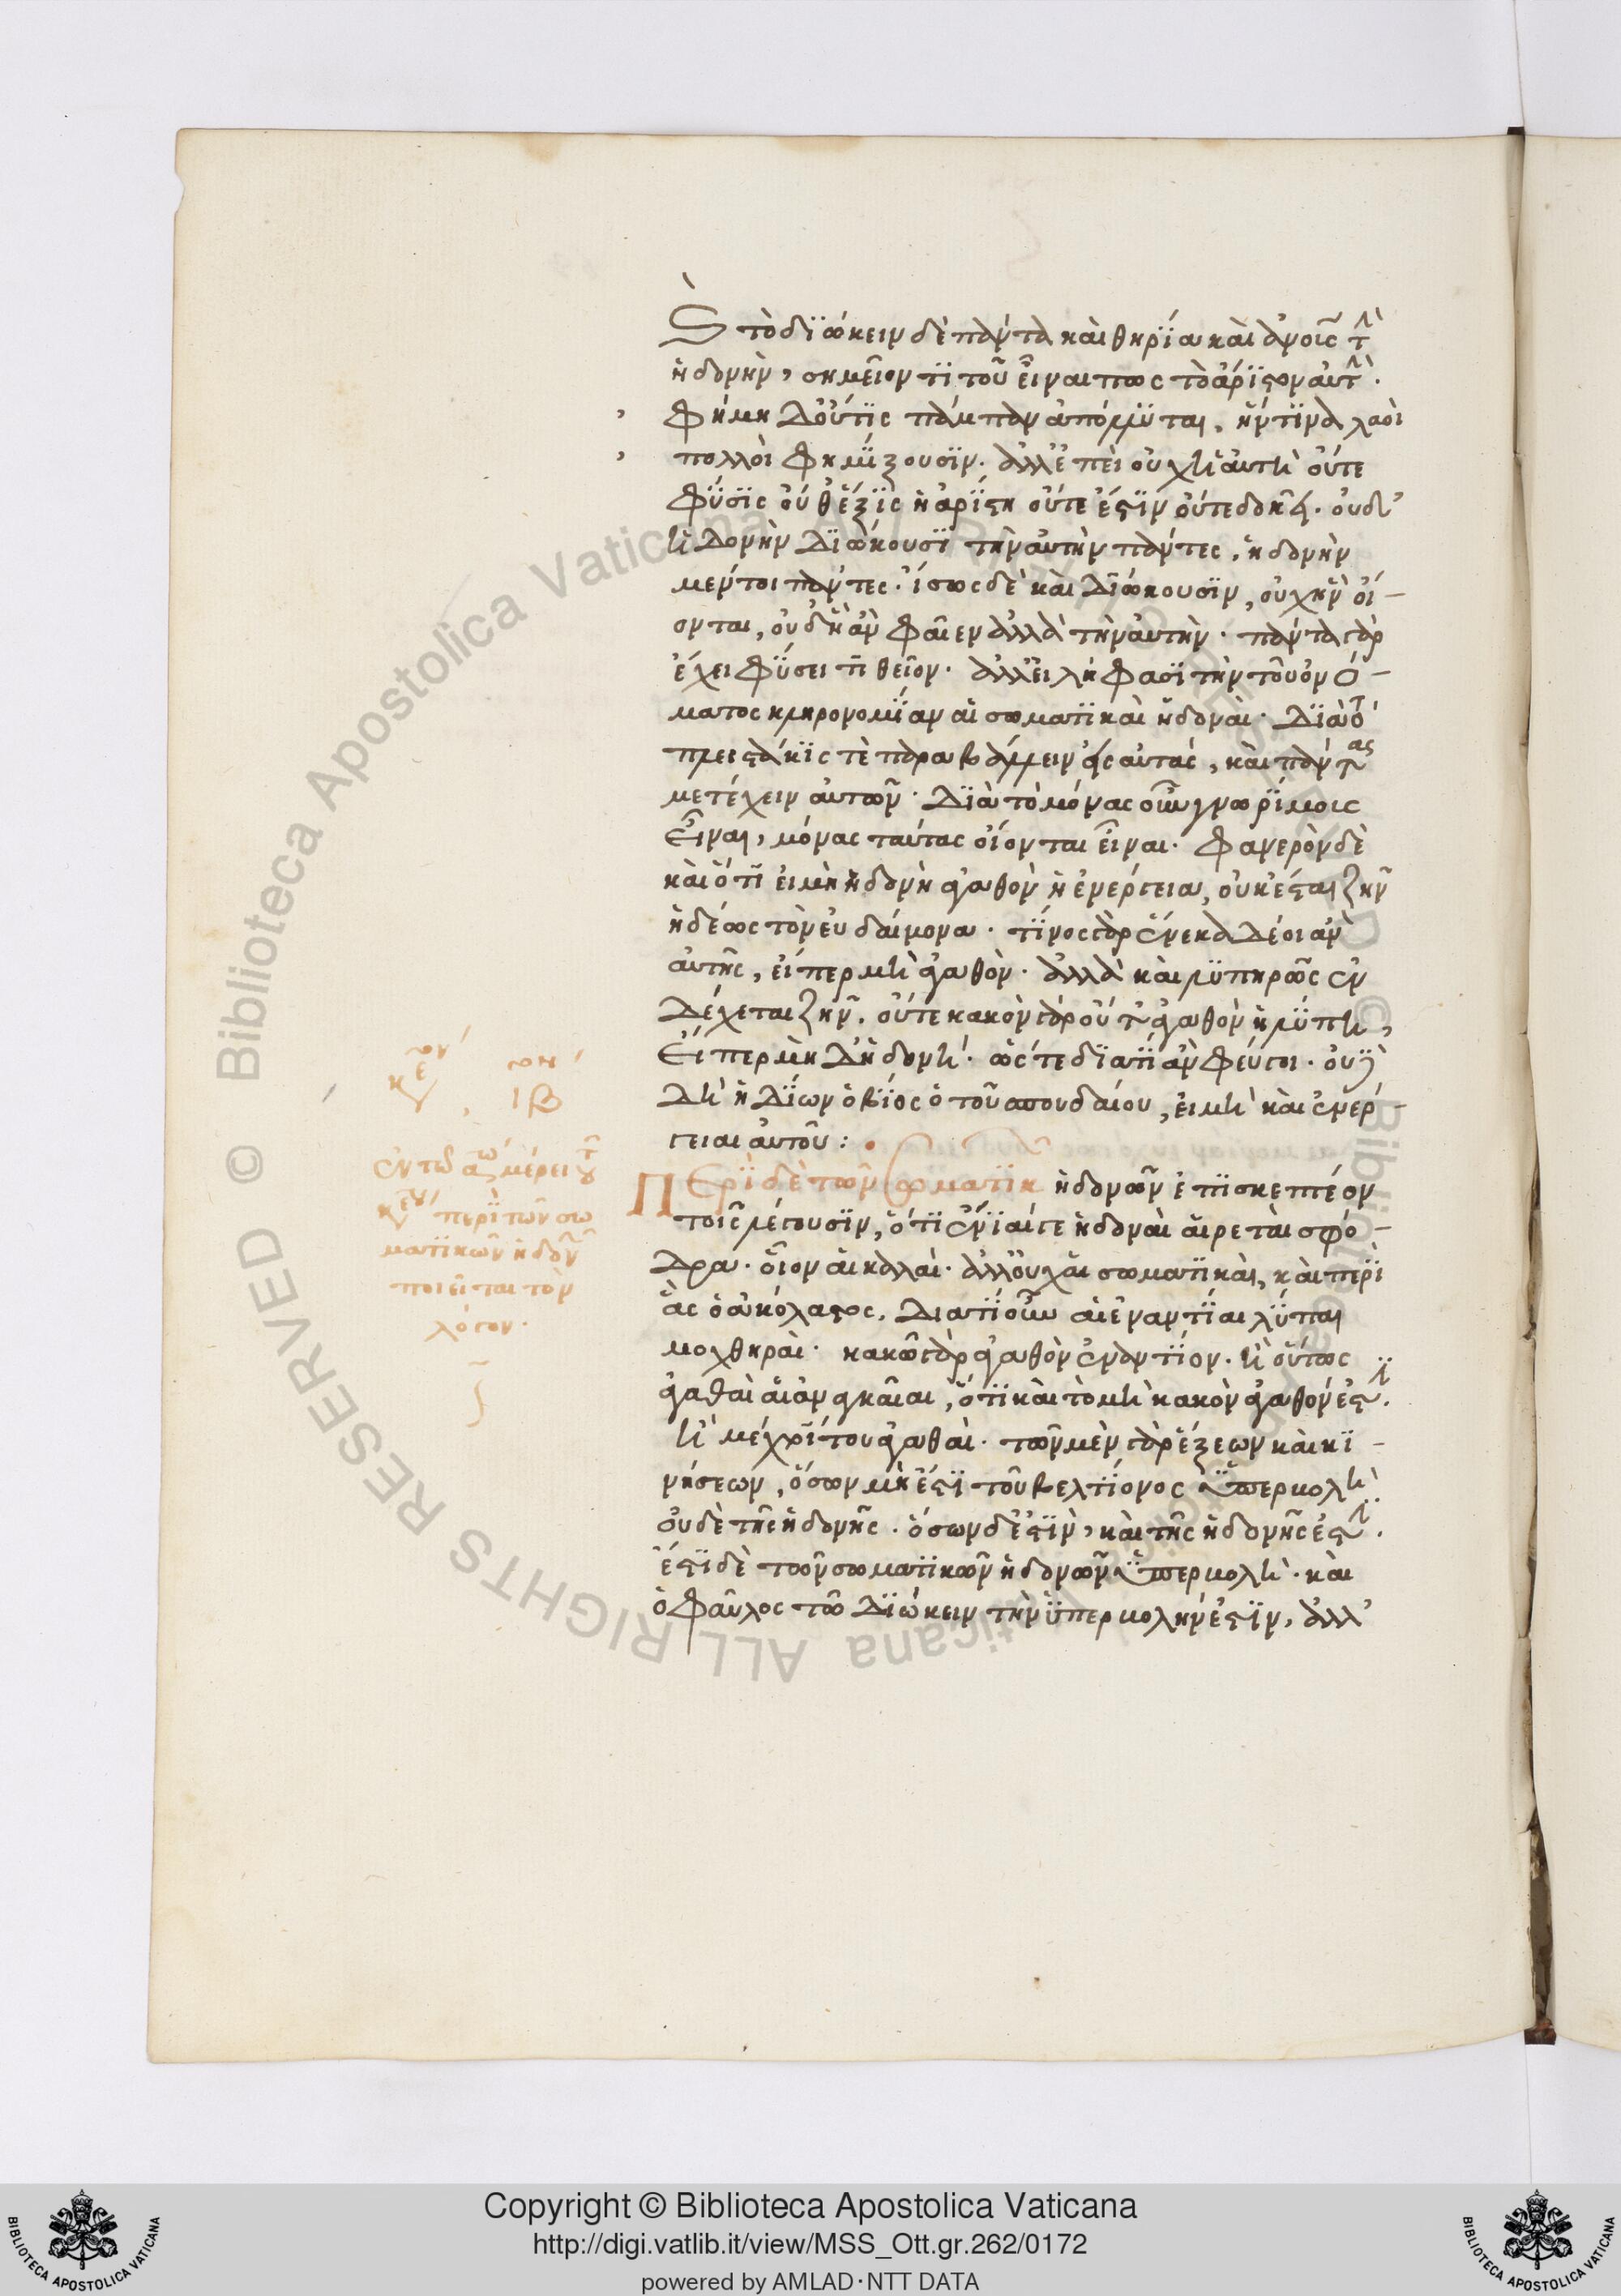 Καὶ τὸ διώκειν δὲ πάντα καὶ θηρία καὶ ἀνοις τὴν
ἡδονὴν, σημεῖον τι τοῦ εἶναι πως τὸ ἄριστον αὐτήν.
φήμη δ' οὔτις πάμπαν ἀπόλλυται, ἥντινα λαοὶ
πολλοὶ φημίζουσιν. ἀλλ' ἐπεὶ οὐχ ἡ αὐτὴ οὔτε
φύσις οὔθ' ἕξις ἡ ἀρίστη οὔτε ἐστὶν οὔτε δοκεῖ. οὐδ'
ἡδονὴν διώκουσι τὴν αὐτὴν πάντες, ἡδονὴν
μέντοι πάντες. ἴσως δὲ καὶ διώκουσιν, οὐχ ἣν οἴ-
ονται, οὐδ' ἣν ἂν φαῖεν ἀλλὰ τὴν αὐτὴν. πάντα γὰρ
ἔχει φύσει τι θεῖον. ἀλλ' εἰλήφασι τὴν τοῦ ὀνό-
ματος κληρονομίαν αἱ σωματικαὶ ἡδοναὶ. διὰ τὸ
πλειστάκις τὲ παραβάλλειν εἰς αὐτὰς, καὶ πάντας
μετέχειν αὐτῶν. διὰ τὸ μόνας οὖν γνωρίμοις
εἶναι, μόνας ταύτας οἴονται εἶναι. φανερὸν δὲ
καὶ ὅτι εἰ μὴ ἡδονὴ ἀγαθὸν ἡ ἐνέργεια, οὐκ ἔσται ζῆν
ἡδέως τὸν εὐδαίμονα. τίνος γὰρ ἕνεκα δέοι ἂν
αὐτῆς, εἴπερ μὴ ἀγαθὸν. ἀλλὰ καὶ λυπηρῶς ἐν
δέχεται ζῆν. οὔτε κακὸν γὰρ οὔτ' ἀγαθὸν ἡ λύπη,
εἴπερ μὴ δ' ἡδονή. ὥστε διατί ἂν φεύγοι. οὐδὲ
δὴ ἡδίων ὁ βίος ὁ τοῦ σπουδαίου, εἰ μὴ καὶ ἐνέρ-
γειαι αὐτοῦ:
Περὶ δὲ τῶν σωματικ ἡδονῶν ἐπισκεπτέον
τοῖς λέγουσιν, ὅτι ἔνιαί γε ἡδοναὶ αἱρεταὶ σφό-
δρα. οἷον αἱ καλαὶ. ἀλλ' οὐχ αἱ σωματικαὶ, καὶ περὶ
ἃς ὁ ἀκόλαστος. διατί οὖν αἱ ἐναντίαι λύπαι
μοχθηραὶ. κακῶ γὰρ ἀγαθὸν ἐναντίον. ἢ οὕτως
ἀγαθαὶ αἱ ἀναγκαῖαι, ὅτι καὶ τὸ μὴ κακὸν ἀγαθόν ἐστι.
ἢ μέχρι του ἀγαθαὶ. τῶν μὲν γὰρ ἕξεων καὶ κι-
νήσεων, ὅσων μὴ ἔστι τοῦ βελτίονος ὑπερβολὴ
οὐδὲ τῆς ἡδονῆς. ὅσων δ' ἐστὶν, καὶ τῆς ἡδονῆς ἐστι.
ἔστι δὲ τῶν σωματικῶν ἡδονῶν ὑπερβολὴ. καὶ
ὁ φαῦλος τῶ διώκειν τὴν ὑπερβολὴν ἐστὶν, ἀλλ'
ιβ
ἐν τῶ μέρει τοῦ
περὶ τῶν σω
ματικῶν ἡδονῶν
ποιεῖται τὸν
λόγον.
© Biblioteca Apostolica Vaticana ALL RIGHTS RESERVED
Copyright © Biblioteca Apostolica Vaticana
http://digi.vatlib.it/view/MSS_Ott.gr.262/0172
powered by AMLAD·NTT DATA
BIBLIOTECA APOSTOLICA VATICANA
BIBLIOTECA APOSTOLICA VATICANA